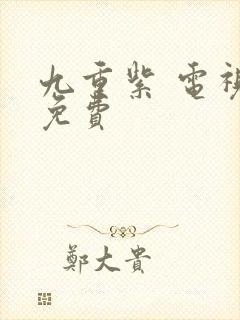 九重紫 電視
免費
鄭大貴